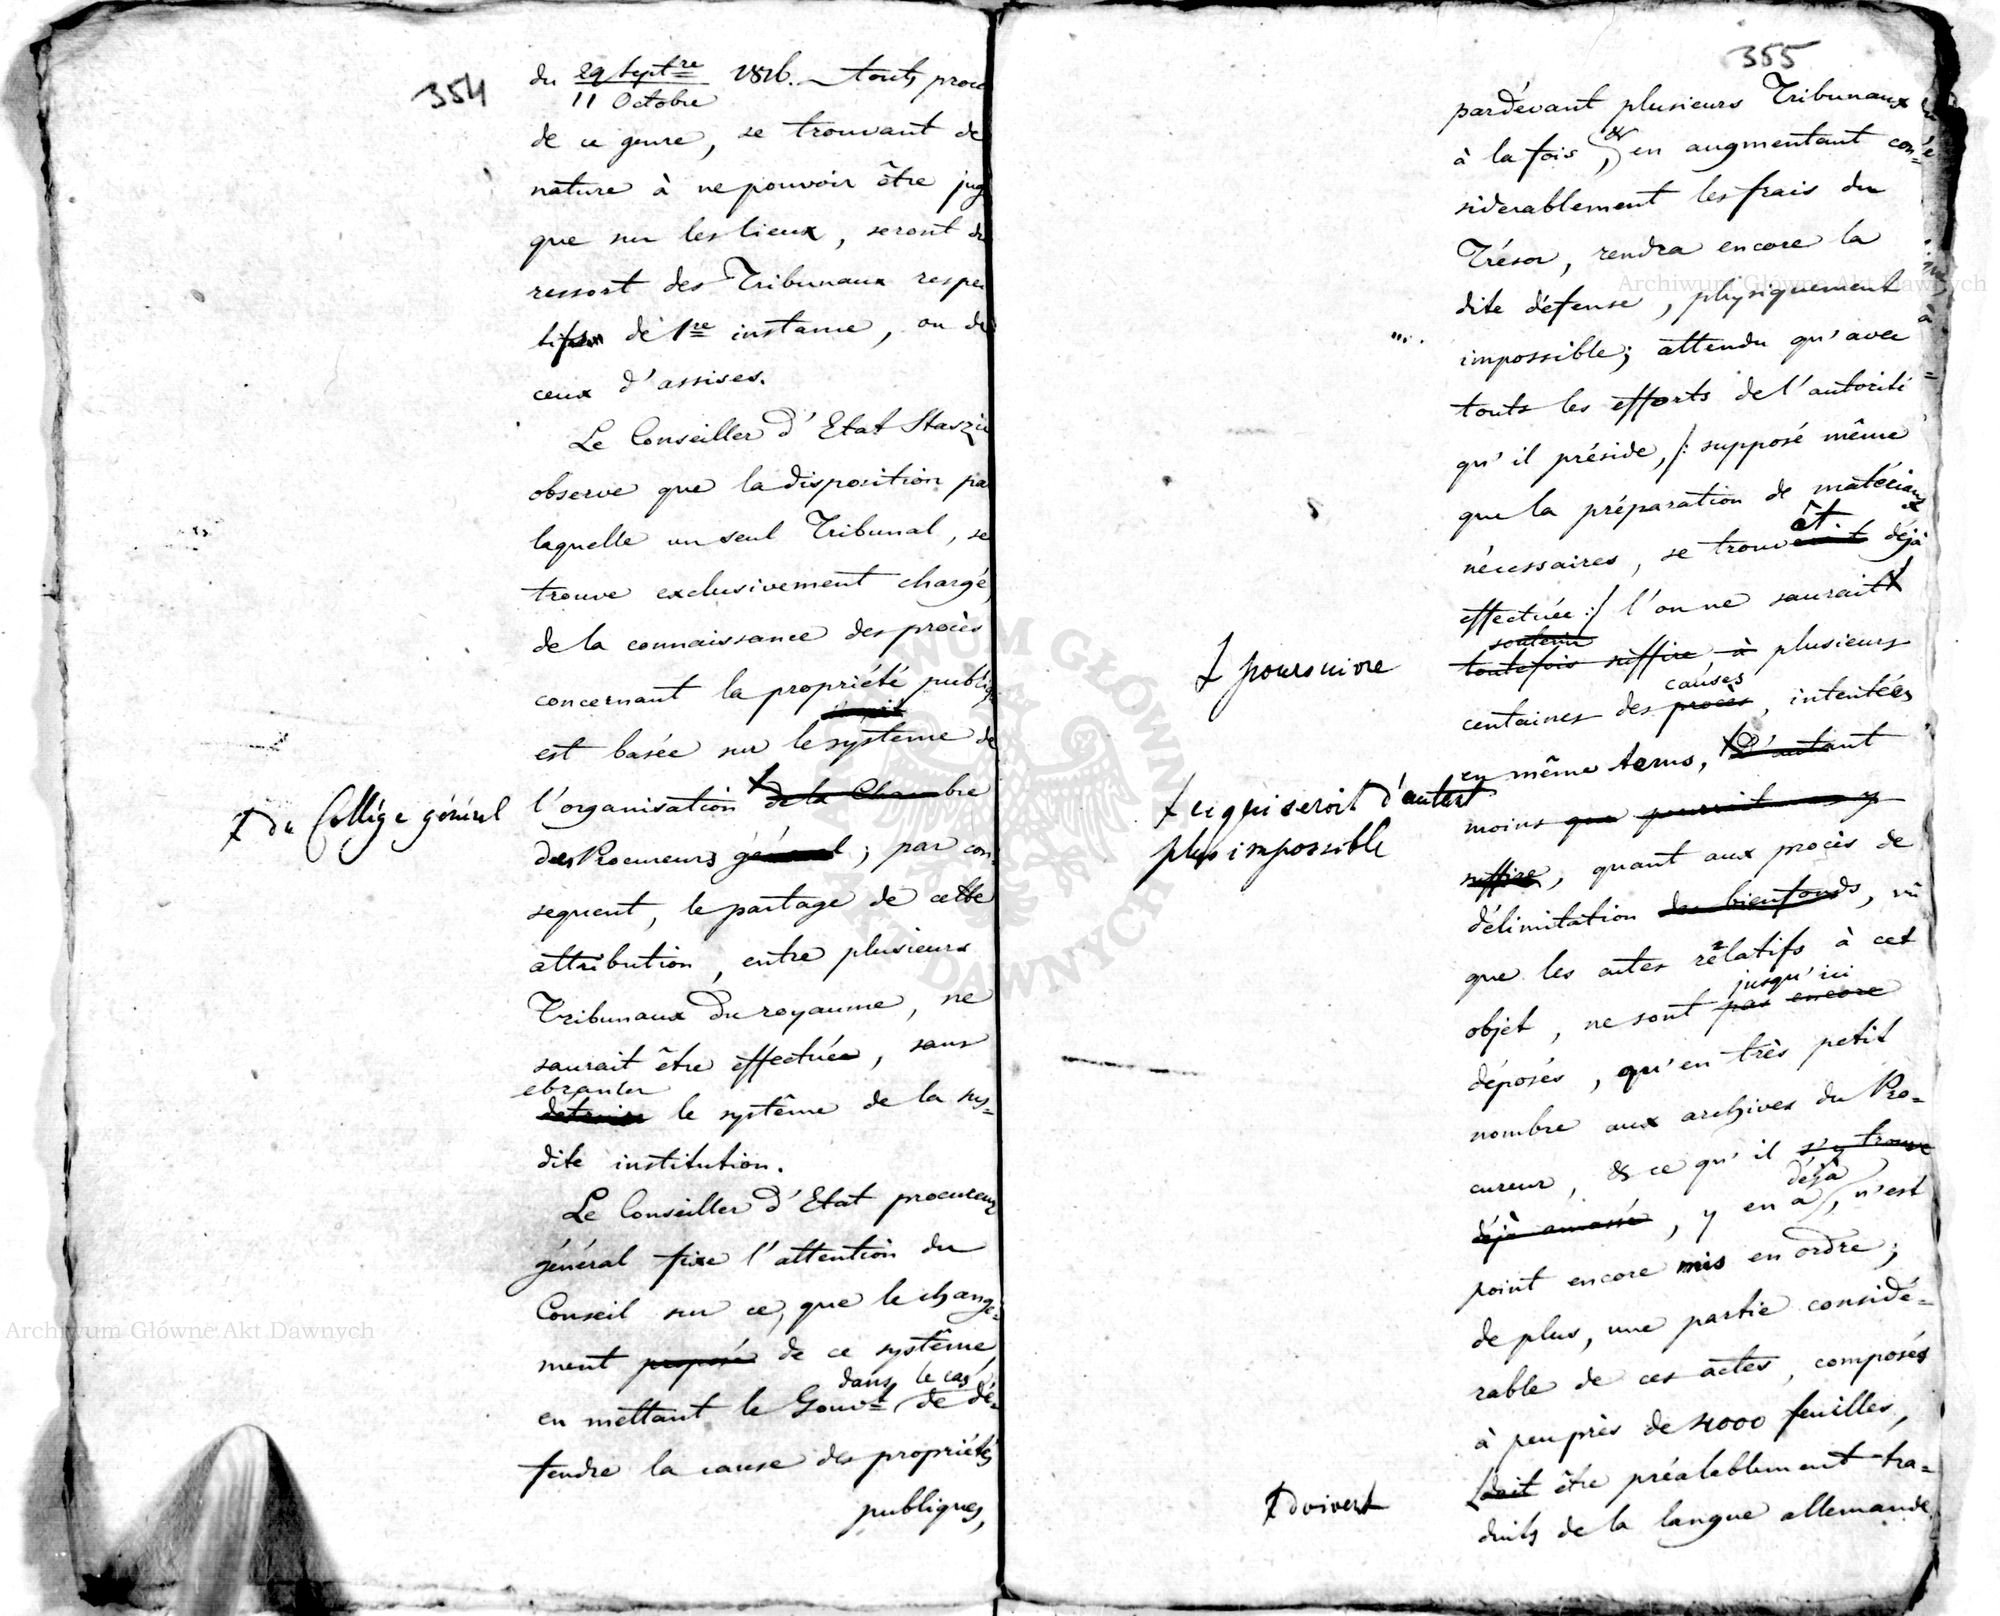 354
du 29 Septre 1816. touts procè
11 Octobre
de ce genre, se trouvant de
nature à ne pouvoir être jug
que sur les lieux, seront du
ressort des Tribunaux respec
tifs de 1re instance, ou de
ceux d'assises.
Le Conseiller d'Etat Staszic
observe que la disposition pa
laquelle un seul Tribunal, se
trouve exclusivement chargé
de la connaissance des procès
concernant la propriété publiq
est basée sur le système de
l'organisation de la Chambre
du Collège général
des Procureurs général; par con=
sequent, le partage de cette
attribution, entre plusieurs
Tribunaux du royaume, ne
saurait être effectuée, sans
ebranler
détruire le systême de la sus=
dite institution.
Le Conseiller d'Etat procureur
général fixe l'attention du
Conseil sur ce, que le change=
ment proposé de ce systême
dans le cas
en mettant le Gouvt de dé=
fendre la cause des propriétés
publiques,
355
pardévant plusieurs Tribunaux
à la fois, & en augmentant con=
siderablement les frais du
Trésor, rendra encore la
dite défense, physiquement
impossible; attendu qu'avec
touts les efforts de l'autorité
qu'il préside, /: supposé même
que la préparation de matériaux
nécessaires, se trouvât déjà
effectuée :/ l'on ne saurait
soutenir
poursuivre
toutefois suffire à plusieurs
causes
centaines des procès, intentées
en même tems, d'autant
ce qui seroit d'autant
plus impossible
moins que pourrait y
suffire, quant aux procès de
délimitation des bienfonds, vû
que les actes rélatifs à cet
jusqu'ici
objet, ne sont pas encore
déposés, qu'en très petit
nombre aux archives du Pro=
cureur, & ce qu'il s'y trouve
déjà
déjà amassé, y en a, n'est
point encore mis en ordre;
de plus, une partie considé=
rable de ces actes, composés
à peu près de 4000 feuilles,
doivent
doit être préalablement tra=
duits de la langue allemande
Archiwum Główne Akt Dawnych
Archiwum Główne Akt Dawnych
ARCHIWUM GŁÓWNE AKT DAWNYCH